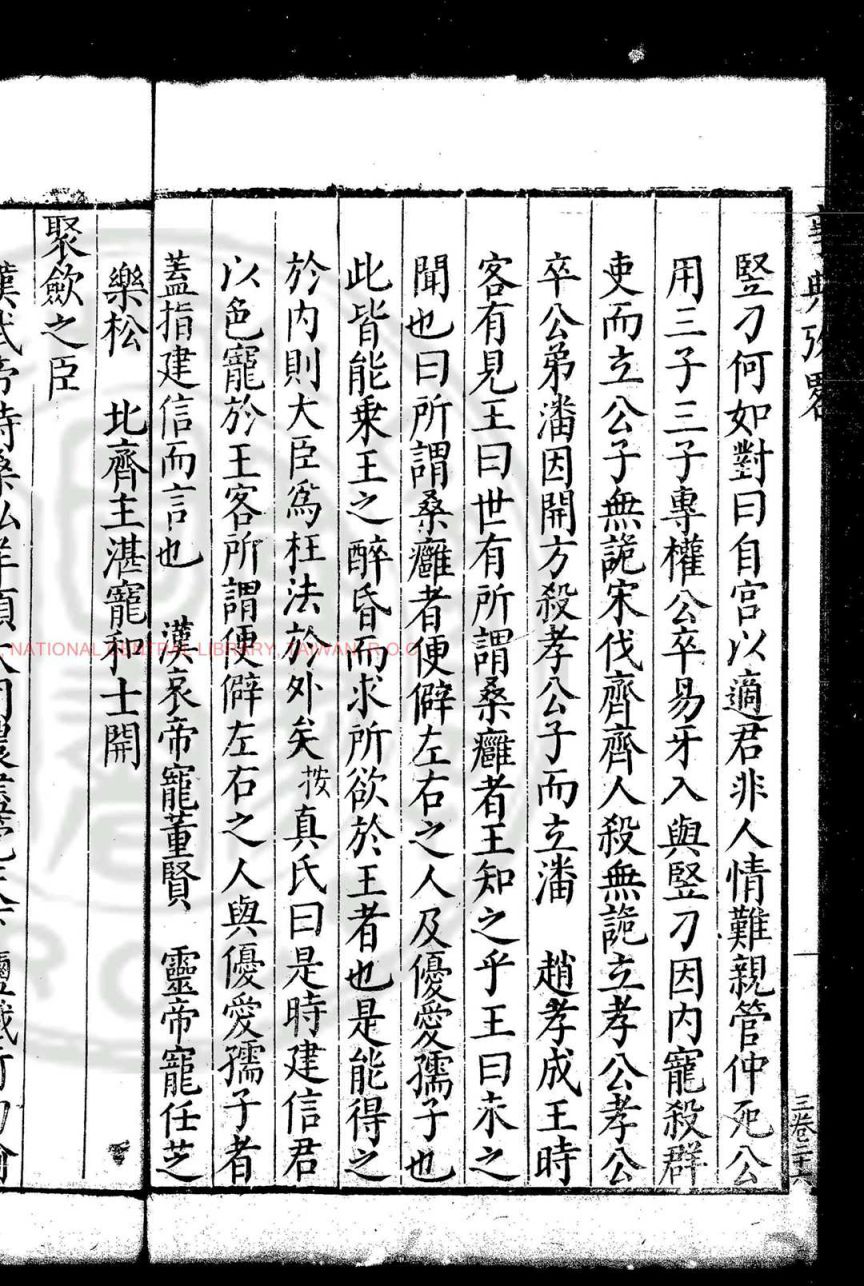 竪刁何如對曰自宫以適君非人情難親管仲死公
用三子三子專權公卒易牙入與竪刁因内寵殺群
吏而立公子無詭宋伐齊齊人殺無詭立孝公孝公
卒公弟潘因開方殺孝公子而立潘　趙孝成王時
客有見王曰世有所謂桑癰者王知之乎王曰未之
聞也曰所謂桑癰者便僻左右之人及優愛孺子也
此皆能乗王之醉昏而求所欲於王者也是能得之
於内則大臣爲枉法於外矣按真氏曰是時建信君
以色寵於王客所謂便僻左右之人與優愛孺子者
蓋指建信而言也　漢哀帝寵董賢　靈帝寵任芝
樂松　北齊主湛寵和士開
聚歛之臣
三卷二十六
NATIONAL CENTRAL LIBRARY, TAIWAN, R.O.C